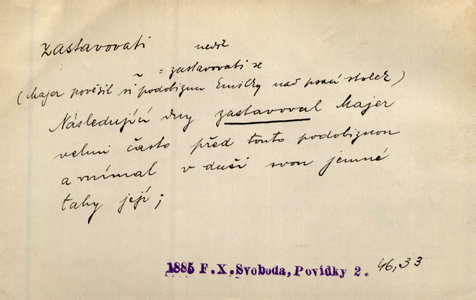 zastavovati nedok
~ = zastavovati se
(Majer pověsil si podobiznu Emilky nad psací stolek)
Následující dny zastavoval Majer
velmi často před touto podobiznou
a vnímal v duši svou jemné
tahy její;
1885 F. X. Svoboda, Povídky 2. 46, 33